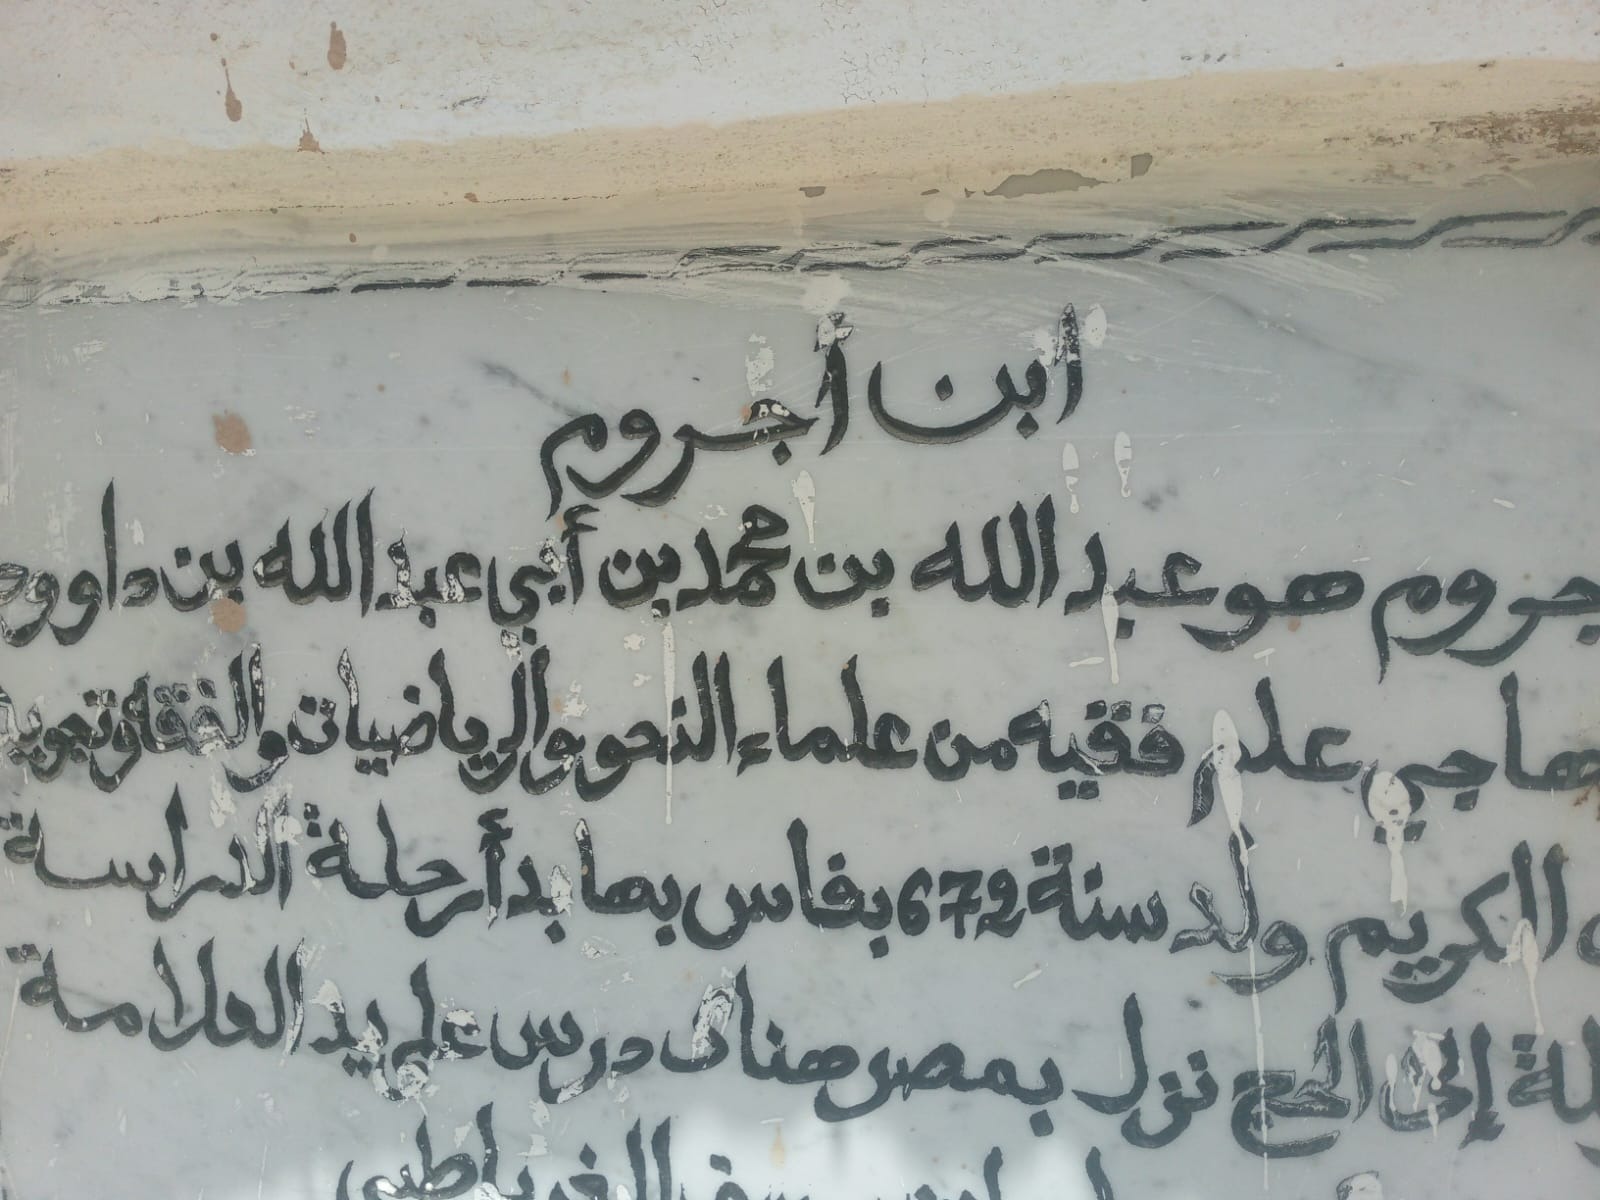 ابن أجروم
جروم هو عبد الله بن محمد بن أبي عبد الله بن داوود
هاجي علم فقيه من علماء النحو والرياضيات والفقه وتجويد
الكريم ولد سنة 672 بفاس بها بدأ رحلة الدراسة
لة إلى الحج نزل بمصر هناك درس على يد العلامة
الغرناطي